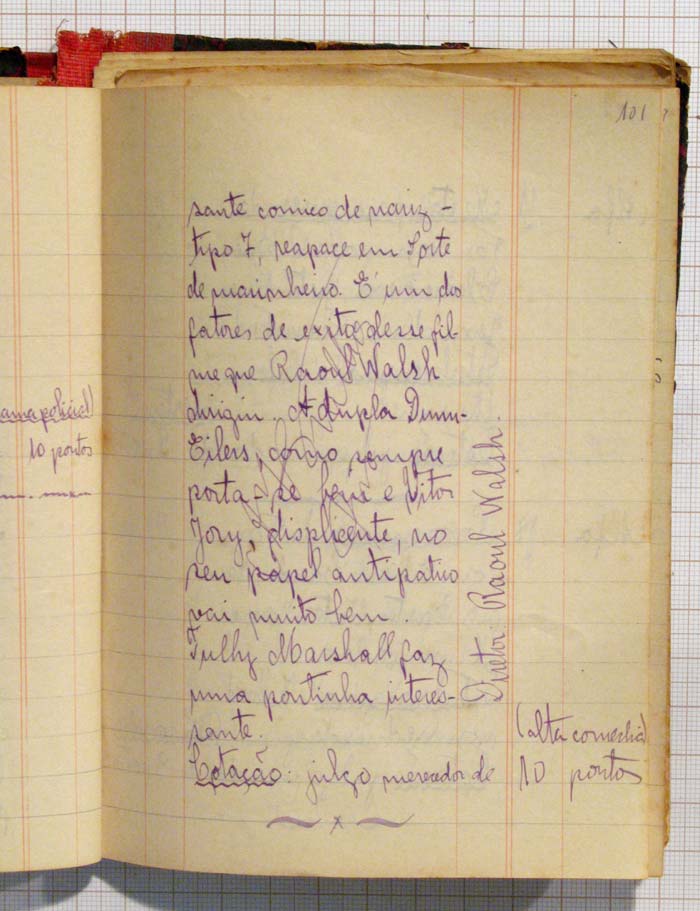 101
sante comico de nariz -
tipo 7, reapace em Sorte
de marinheiro. E' um dos
fatores de exito desse fil-
me que Raoul Walsh
dirigiu. A dupla Dunn-
Eilers, como sempre
porta-se bem e Vitor
Jory, displicente, no
seu papel antipatico
vai muito bem
Tully Marshall faz
uma pontinha interes-
sante.
Cotação: julgo merecedor de 10 pontos
(alta comedia)
Diretor Raoul Walsh.
ama policial)
10 pontos